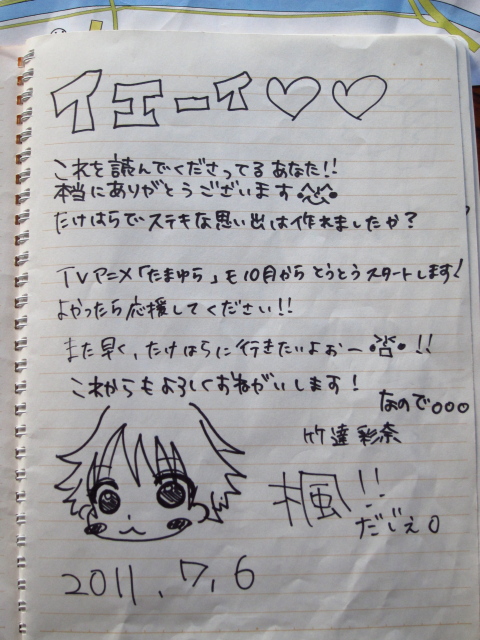 イエーイ♡♡
これを読んでくださってるあなた!!
本当にありがとうございます
たけはらでステキな思い出は作れましたか?
TVアニメ「たまゆら」も10月からとうとうスタートします!
よかったら応援してください!!
また早く、たけはらに行きたいよぉー!!
これからもよろしくおねがいします!
なので。。。
竹達彩奈
楓!!
だじぇ
2011.7.6